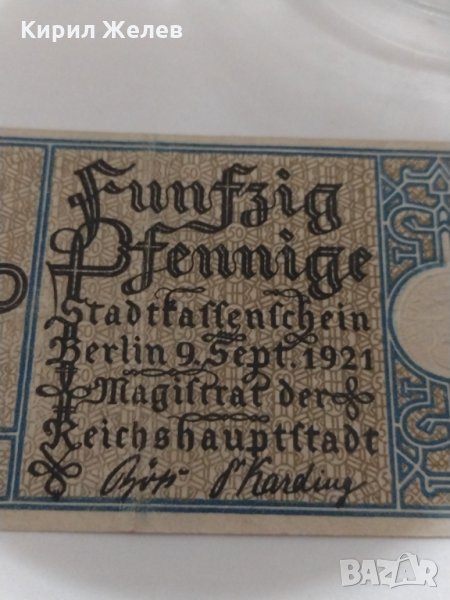 Кирил Желев
Funfzig
Pfennige
Stadtkassenschein
Berlin 9. Sept. 1921
Magistrat der
Reichshauptstadt
Böß Karding
BAZAR